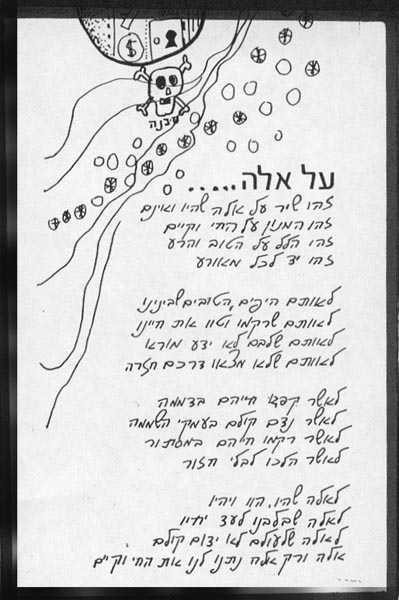 $
סכנה
על אלה.....
זהו שיר על אלה שהיו ואינם
זהו המנון על החי וקיים
זהו הלל על הטוב והרע
זהו יד לכל מאורע
לאותם היפים, הטובים שבינינו
לאותם שרקמו וטוו את חיינו
לאותם שלבם לא ידע מורא
לאותם שלא מצאו דרכם חזרה
לאשר קפדו חייהם בדממה
לאשר נדם קולם בעמקי השממה
לאשר רקמו חייהם במסתור
לאשר הלכו לבלי חזור
לאלה שהיו, הוו ויהיו
לאלה שבלבנו לעד יחדיו
לאלה שלעולם לא ידום קולם
אלה ורק אלה נתנו לנו את החי וקיים